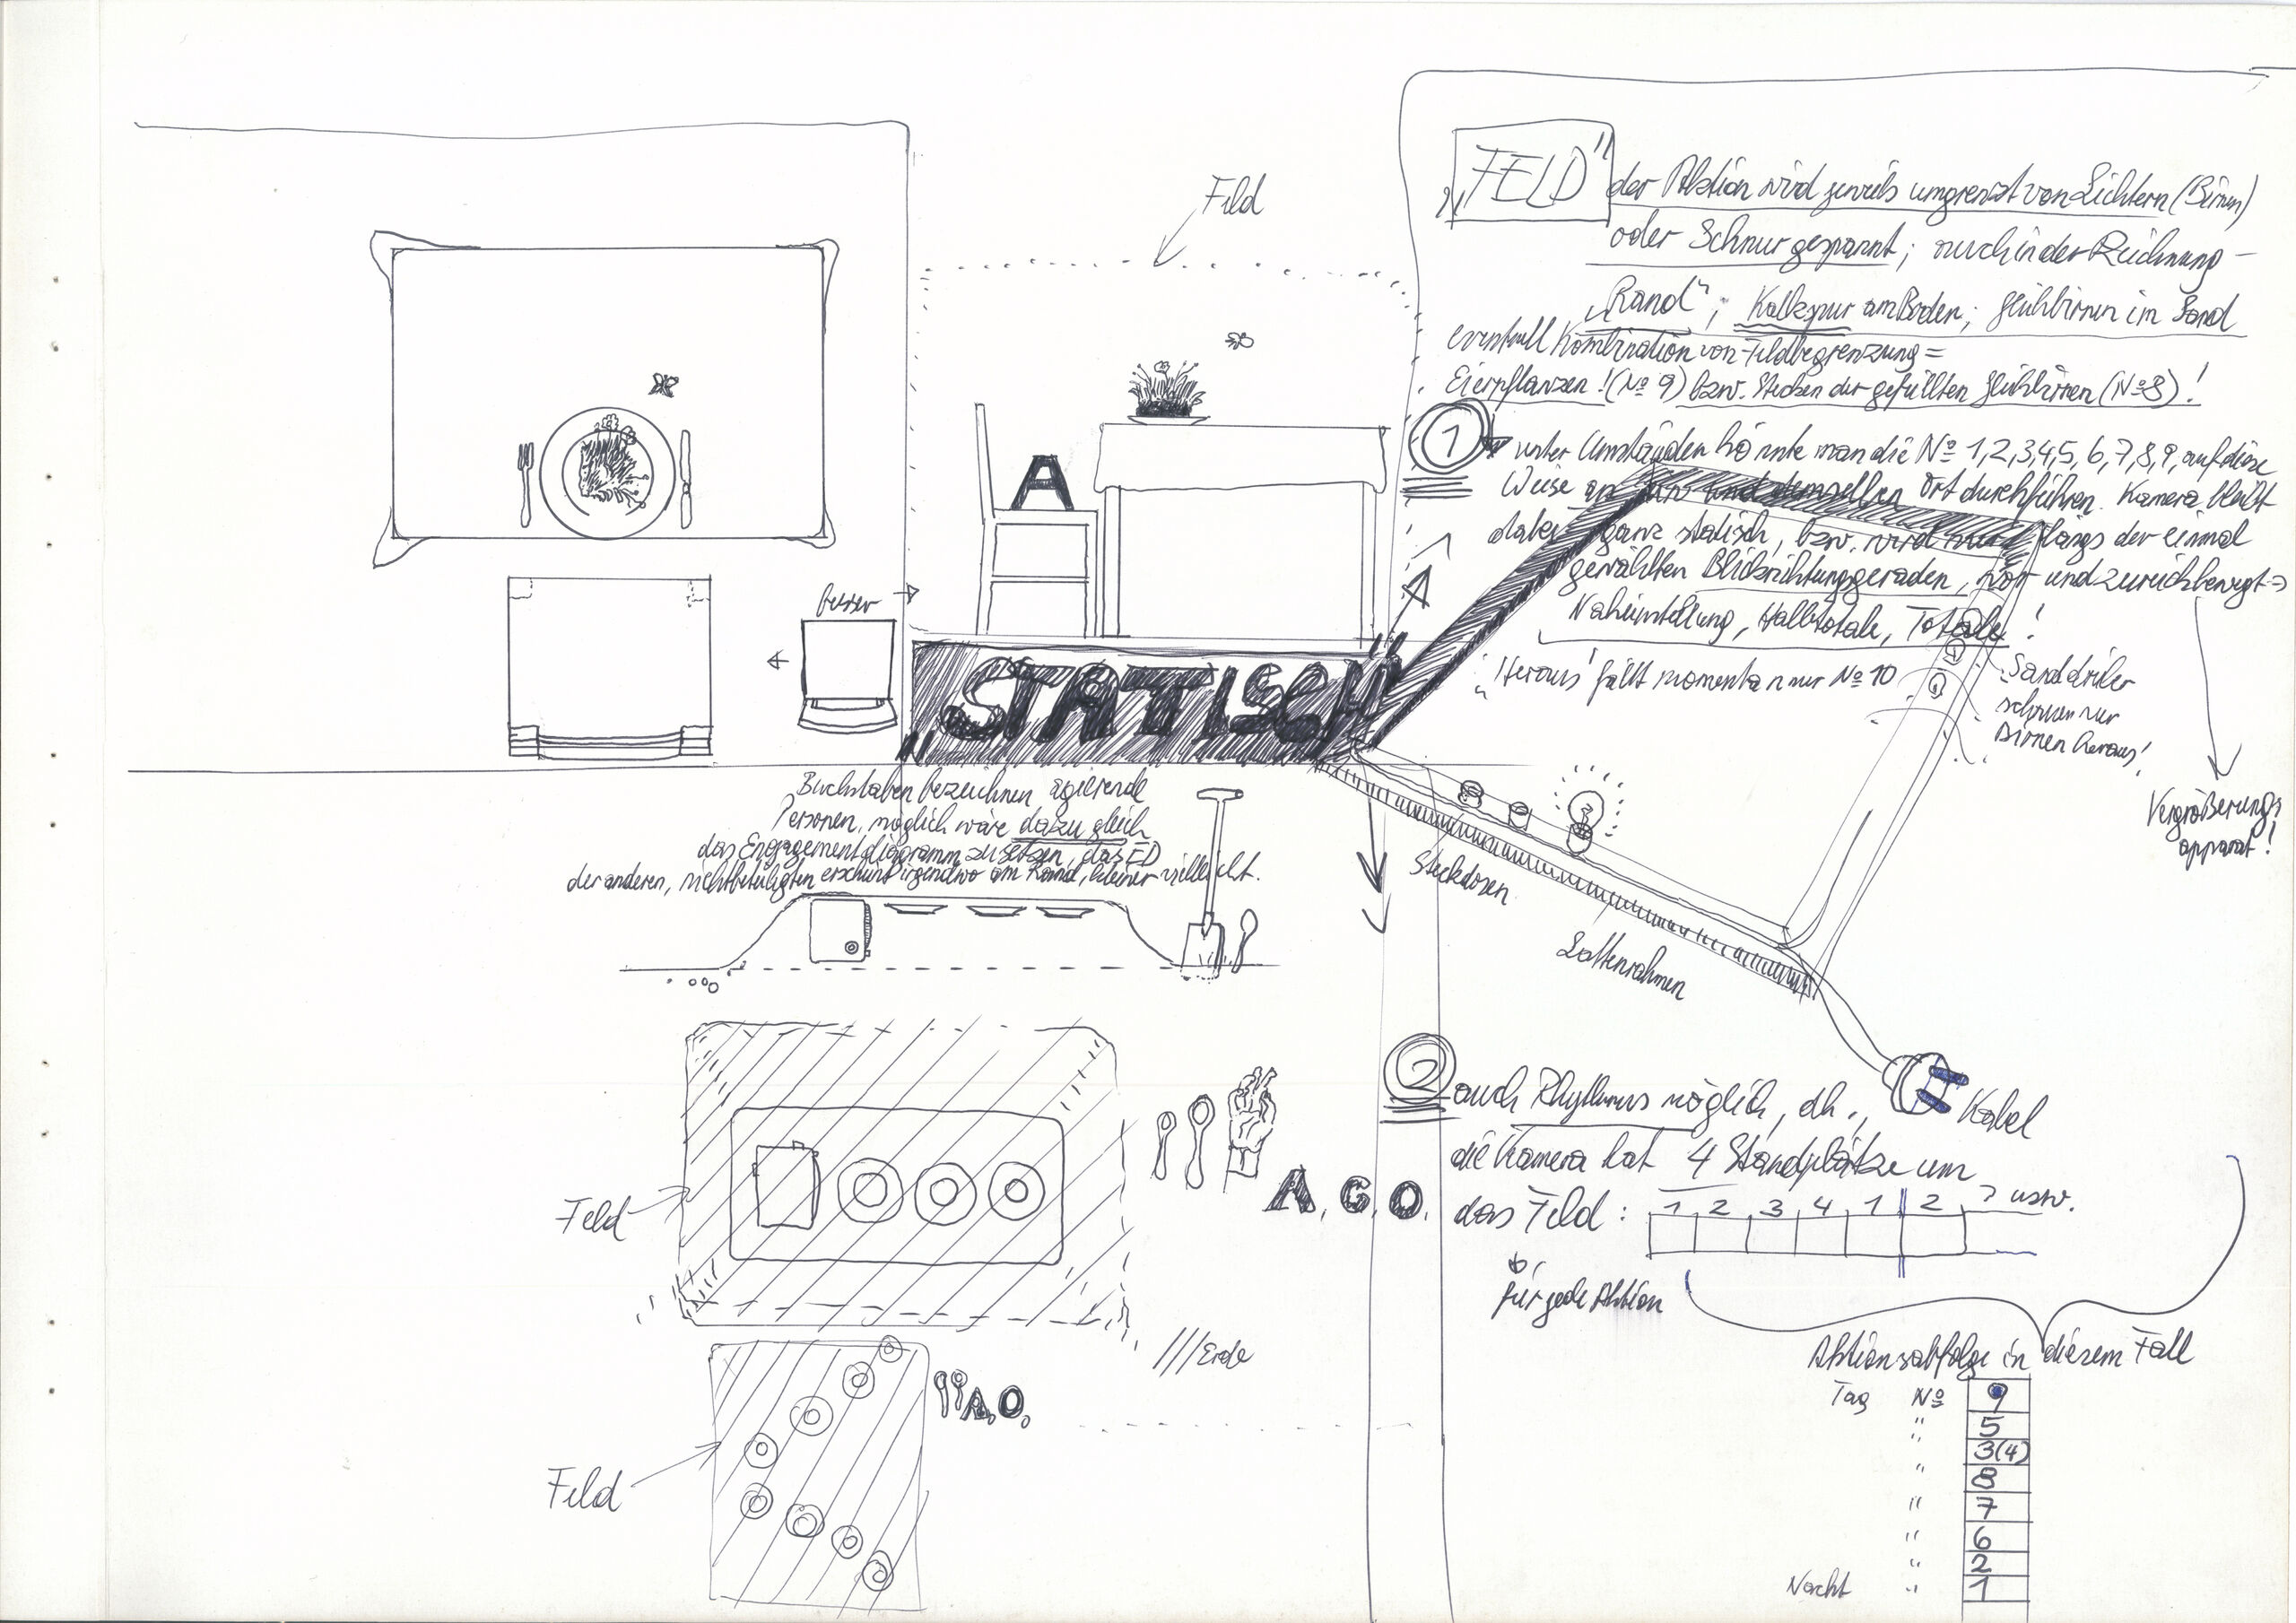 Feld
„FELD"
der Aktion wird jeweils umgrenzt von Lichtern (Birnen)
oder Schnur gespannt; auch in der Zeichnung –
„Rand"; Kalkspur am Boden; Glühbirnen im Sand
eventuell Kombination von Feldbegrenzung =
Eierpflanzen! (Nº 9) bzw. Stecken der gefüllten Glühbirnen (Nº 8)!
1
unter Umständen könnte man die Nº 1,2,3,4,5,6,7,8,9, auf diese
Weise an ein und demselben Ort durchführen. Kamera bleibt
dabei ganz statisch, bzw. wird nur längs der einmal
gewählten Blickrichtungsgeraden, vor und zurückbewegt →
Naheinstellung, Halbtotale, Totale!
„Heraus" fällt momentan nur Nº 10
Sand drüber
schauen nur
Birnen heraus!
Vergrößerungs
apparat!
A
besser
„STATISCH"
Buchstaben bezeichnen agierende
Personen, möglich wäre dazu gleich
das Engagementdiagramm zu setzen, das ED
der anderen, nichtbeteiligten erscheint irgendwo am Rand, kleiner vielleicht.
Steckdosen
Lattenrahmen
Kabel
Feld
A. G. O.
///Erde
Feld
A. O.
2
auch Rhythmus möglich, dh.,
die Kamera hat 4 Standplätze um
das Feld: 1 2 3 4 1 2 ? usw.
für jede Aktion
Aktionsabfolge in diesem Fall
Tag Nº 9
" 5
" 3(4)
" 8
" 7
" 6
" 2
Nacht " 1